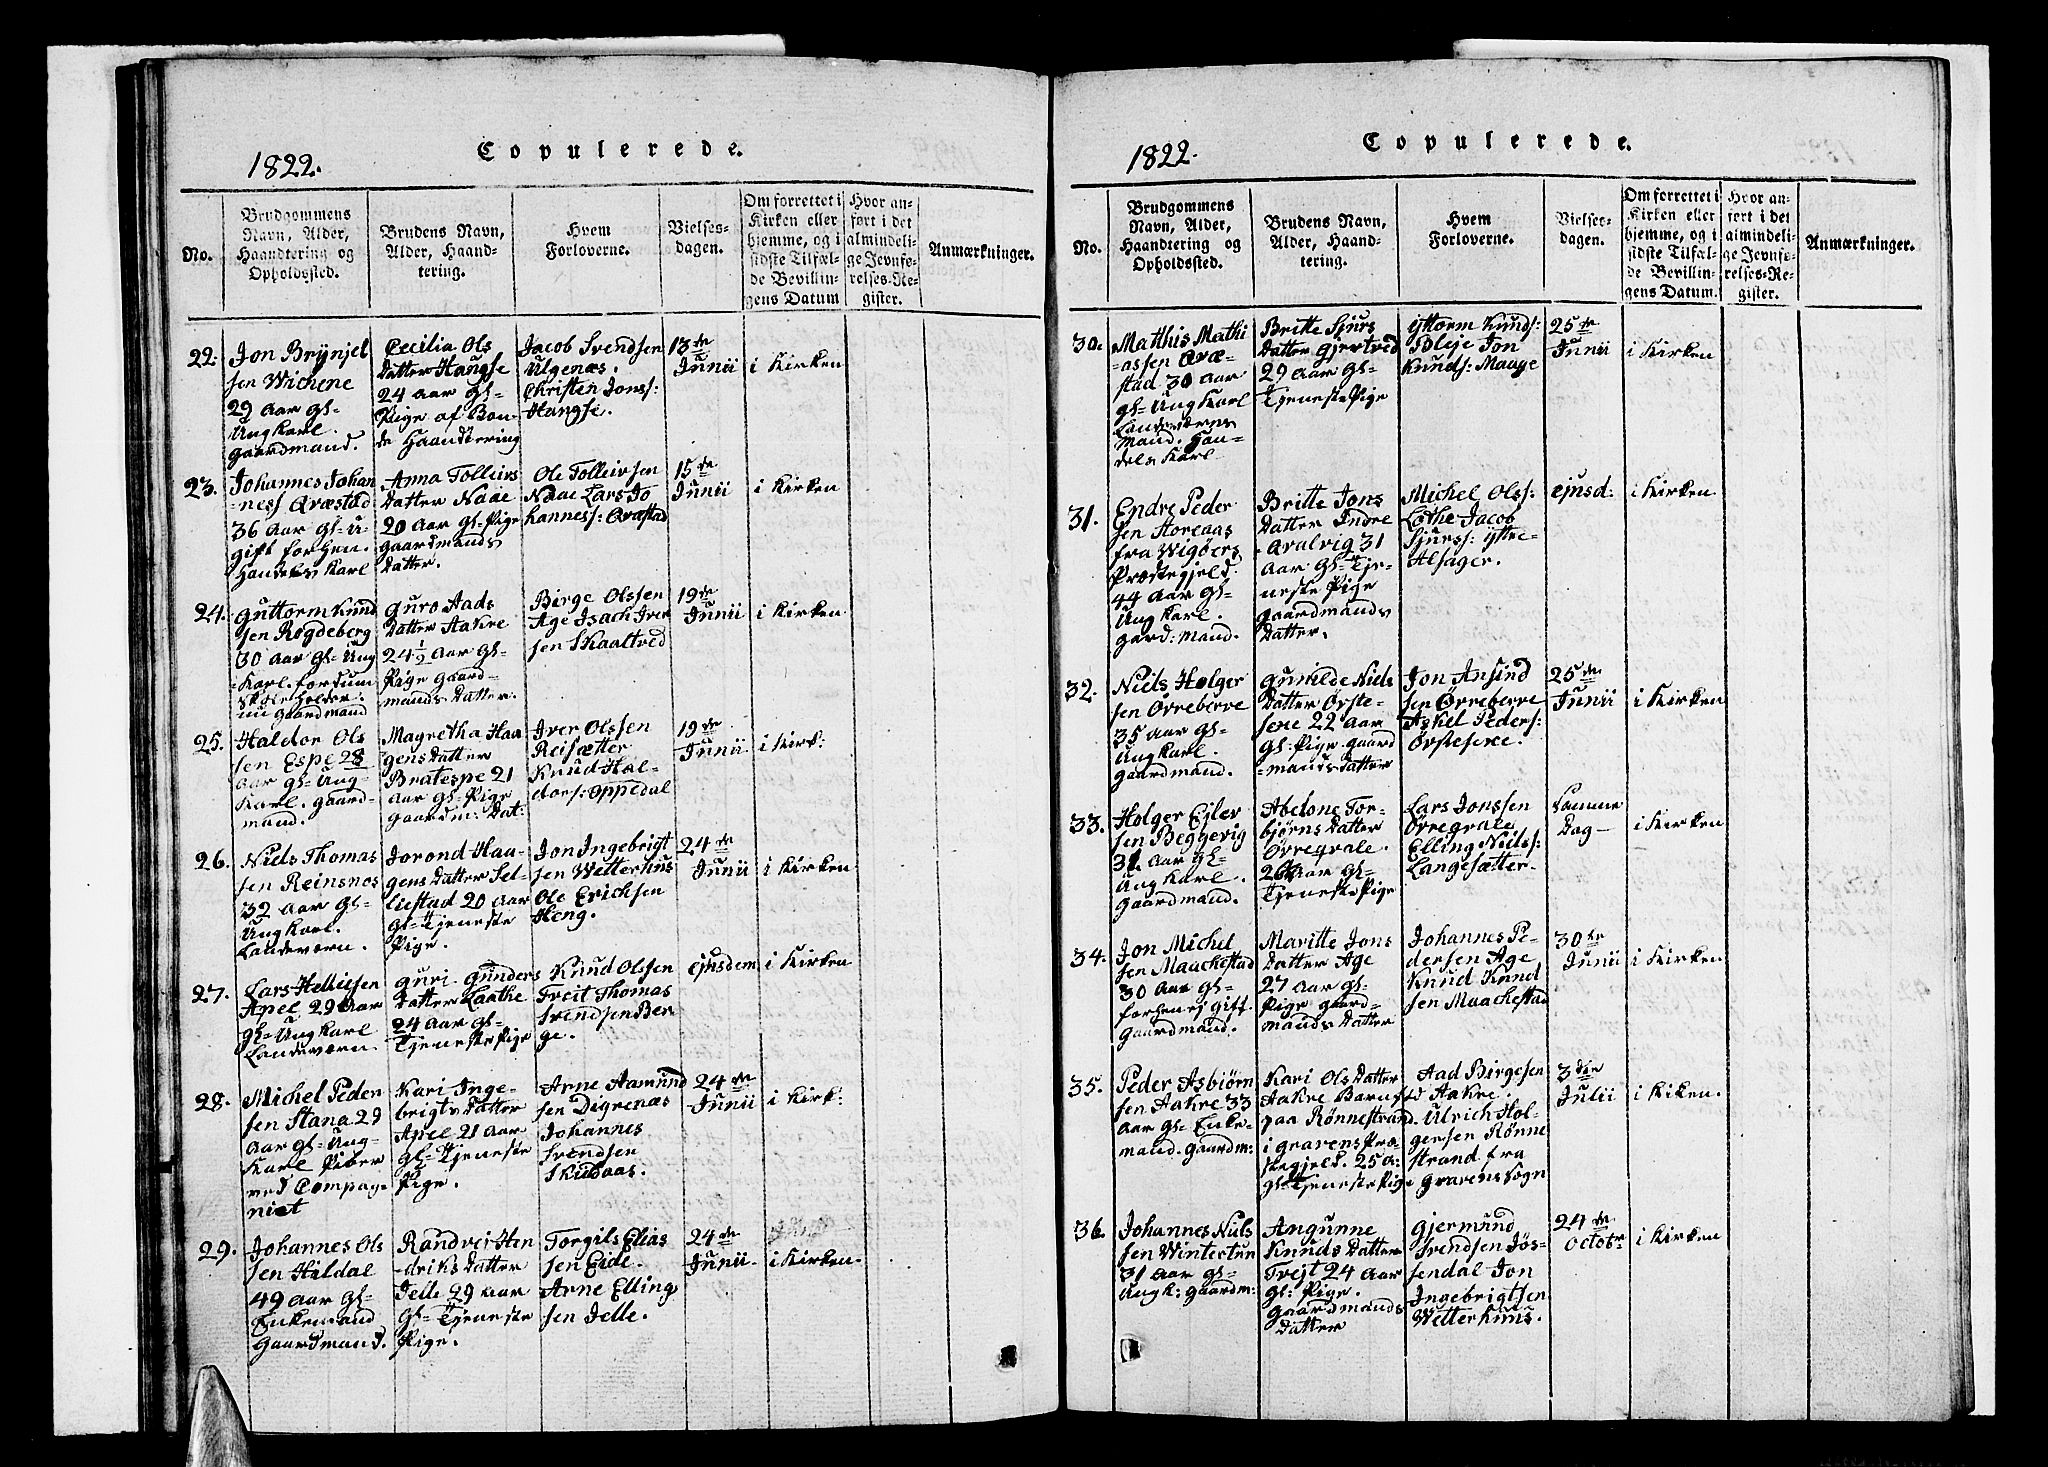 1822.
Copulerede.
No.
Brudgommens
Navn, Alder,
Haandtering og
Opholdssted.
Brudens Navn,
Alder, Haand-
tering.
Hvem
Forloverne.
Vielses-
dagen.
Om forrettet i
Kirken eller
hjemme, og i
sidste Tilfæl-
de Bevillin-
gens Datum
Hvor an-
ført i det
almindeli-
ge Jevnfø-
relses-Re-
gister.
Anmærkninger.
22.
Jon Brynjel
sen Wichene
29 Aar Gl-
Ung Karl.
Gaardmand.
Cecilia Ols
Datter Haugse
24 Aar Gl-
Pige af Bon-
de Haandtering
Jacob Svendsen
Ulgenæs.
Christen Jons:
Haugse.
13de
Junii
i Kirken
23.
Johannes Johan
-ness Qvæstad
36 Aar Gl-u-
gift forhen.
Handels Karl
Anna Tolleivs
Datter Naae
20 Aar Gl-Pige
Gaardmands
Datter.
Ole Tolleivsen
Naae Lars Jo
hanness: Qvæstad
15de
Junii
i Kirken
24.
Guttorm Knud
sen Rogdeberg
30 Aar Gl-Ung
-Karl. fordum
Skoleholder.
nu Gaardmand
Guro Aads
Datter Aakre
24½ Aar Gl-
Pige Gaard-
mands Datter.
Birge Olssen
Age Isach Iver
sen Skaaltved
19de
Junii
i Kirken
25.
Haldor Ols
sen Espe 28
Aar Gl-Ung-
Karl. Gaard-
mand.
Magretha Haa
gens Datter
Bratespe 21
Aar Gl-Pige
Gaardm: Dat:
Iver Olssen
Reisæter
Knud Hal-
dors: Oppedal
19de
Junii
i Kirk:
26.
Niels Thomas
sen Reinsnos
32 Aar Gl-
Ung Karl.
Landeværn.
Jorond Haa-
gens Datter Sel-
liestad 20 Aar
Gl-Tjeneste
Pige.
Jon Ingebrigt
sen Wetterhus
Ole Erichsen
Heng.
24de
Junii
i Kirken
27.
Lars Helliesen
Apel 29 Aar
Gl-Ung Karl
Landeværn.
Guri Gunders
Datter Laathe
24 Aar Gl-
Tjeneste Pige
Knud Olssen
Freit Thomas
Svendsen Ber
ge.
ejusdem
i Kirken
28.
Michel Peder
sen Hana 29
Aar Gl-Ung-
Karl Piber
ved Compag-
niet
Kari Inge-
brigts Datter
Apel 21 Aar
Gl-Tjeneste
Pige.
Arne Aamund
sen Digrenæs
Johannes
Svendsen
24de
Junii
i Kirk:
29.
Johannes Ols
sen Hildal
49 Aar Gl-
Enkemand
Gaardmand.
Randvei Hen
-driks Datter
Jelle 29 Aar
Gl-Tjeneste
Pige.
Torgils Elias
sen Eide.
Arne Elling
sen Jelle.
24de
Junii
i Kirken
1822.
Copulerede.
No.
Brudgommens
Navn, Alder,
Haandtering og
Opholdssted.
Brudens Navn,
Alder, Haand-
tering.
Hvem
Forloverne.
Vielses-
dagen.
Om forrettet i
Kirken eller
hjemme, og i
sidste Tilfæl-
de Bevillin-
gens Datum.
Hvor an-
ført i det
almindeli-
ge Jevnfø-
relses-Re-
gister.
Anmærkninger.
30.
Mathis Mathi
assen Qvæ-
stad 30 Aar
Gl-Ung Karl
Landeværns
Mand. Han-
dels Karl
Britte Sjurs
Datter Gjertved
29 Aar Gl-
Tjeneste Pige
Gttorm Knuds:
Poleje Jon
Knuds: Maage
25de
Junii
i Kirken
31.
Endre Peder
sen Horeaas
fra Wigøers
Præstegjeld.
44 Aar Gl-
Ung Karl.
Gard: Mand.
Britte Jons
Datter Indre
Qvalvig 31
Aar Gl-Tje-
neste Pige
Gaardmands
Datter.
Michel Olss:
Lothe Jacob
Sjurss: Ytre-
Alsager.
ejusd:
i Kirken
32.
Niels Holger
sen Øvreberre
35 Aar Gl-
Ung Karl.
Gaardmand.
Gunilde Niels
Datter Øyste-
sene 22 Aar
Gl: Pige Gaard
-mands Datter
Jon Ansind
sen Øvreberre
Askel Peders:
Øystesene.
25de
Junii
i Kirken
33.
Holger Ejler
sen Beggevig
31 Aar Gl-
Ung Karl.
Gaardmand.
Abelone Tor-
bjørns Datter
Øvreqvale.
26 Aar Gl-
Tjeneste Pige
Lars Jonssen
Øvreqvale
Elling Niels:
Langesæter.
Samme
Dag-
i Kirken
34.
Jon Michel
sen Maachestad
30 Aar Gl-
forhen ej gift.
Gaardmand.
Maritte Jons
Datter Age
27 Aar Gl-
Pige Gaard-
mands Datter
Johannes Pe-
dersen Age
Knud Knud
sen Maachestad
30te
Junii
i Kirken
35.
Peder Asbiørn
sen Aakre 33
Aar Gl- Enke-
mand. Gaardm:
Kari Ols Datter
Aakre Barnfød
paa Rønnestrand
i Gravens Præ
stegjeld. 25 A:
Gl-Tjeneste Pige
Aad Birgesen
Aakre.
Ulrich Hol-
gersen Rønne
strand fra
Gravens Sogn
3die
Julii
i Kiken.
36.
Johannes Niels
sen Wintertun
31 Aar Gl-
Ung K: Gaardm:
Angunne
Knuds Datter
Trejt 24 Aar
Gl: Pige.
Gaardmands
Datter
Gjermund
Svendsen Jøs-
sendal Jon
Ingebrigtsen
Wetterhuus.
24de
Octobr
i Kirken